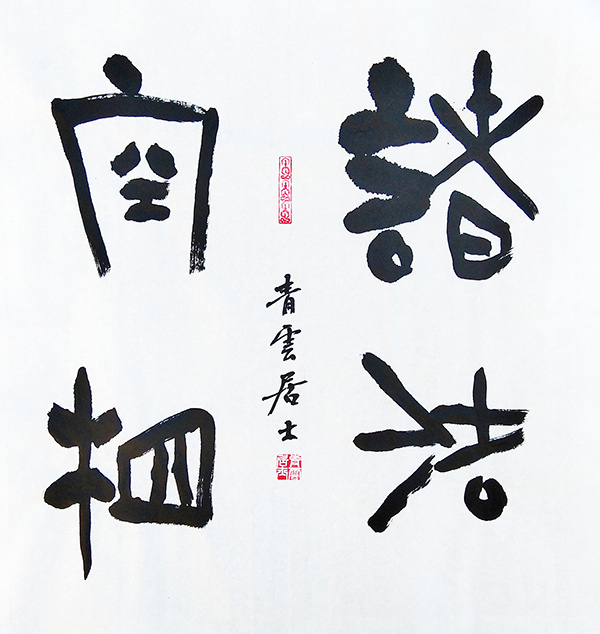 諸法
空相
青雲居士